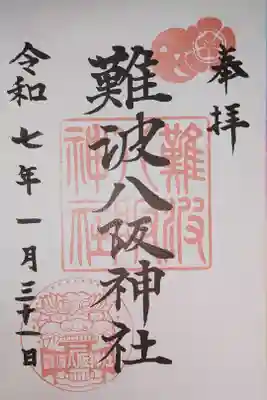 奉拝
難波八阪神社
令和七年一月三十一日
難波
八阪
神社